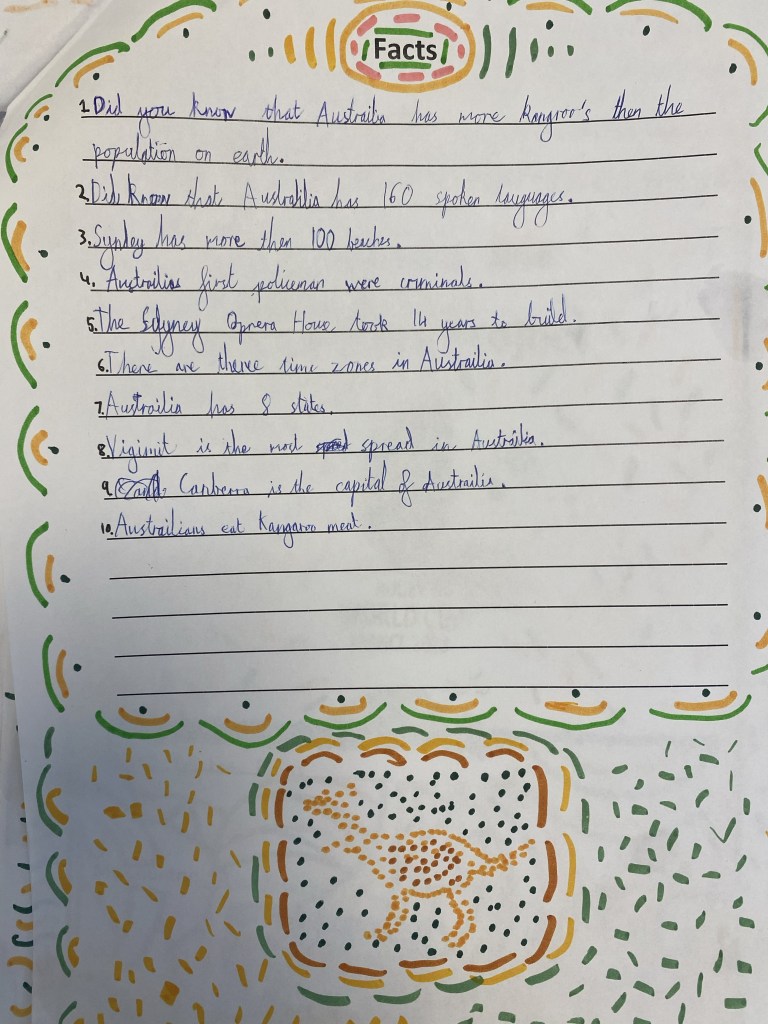 Facts
1. Did you know that Austrailia has more Kangroo's then the
population on earth.
2. Did Know that Austrailia has 160 spoken languages.
3. Syndey has more then 100 beaches.
4. Austrailias first policeman were criminals.
5. The Sdyney Opnera Hous took 14 years to build.
6. There are theree time zones in Austrailia.
7. Austrailia has 8 states.
8. Vigimit is the most spread in Austrailia.
9. Canberra is the capital of Austrailia.
10. Austrailians eat Kangaroo meat.